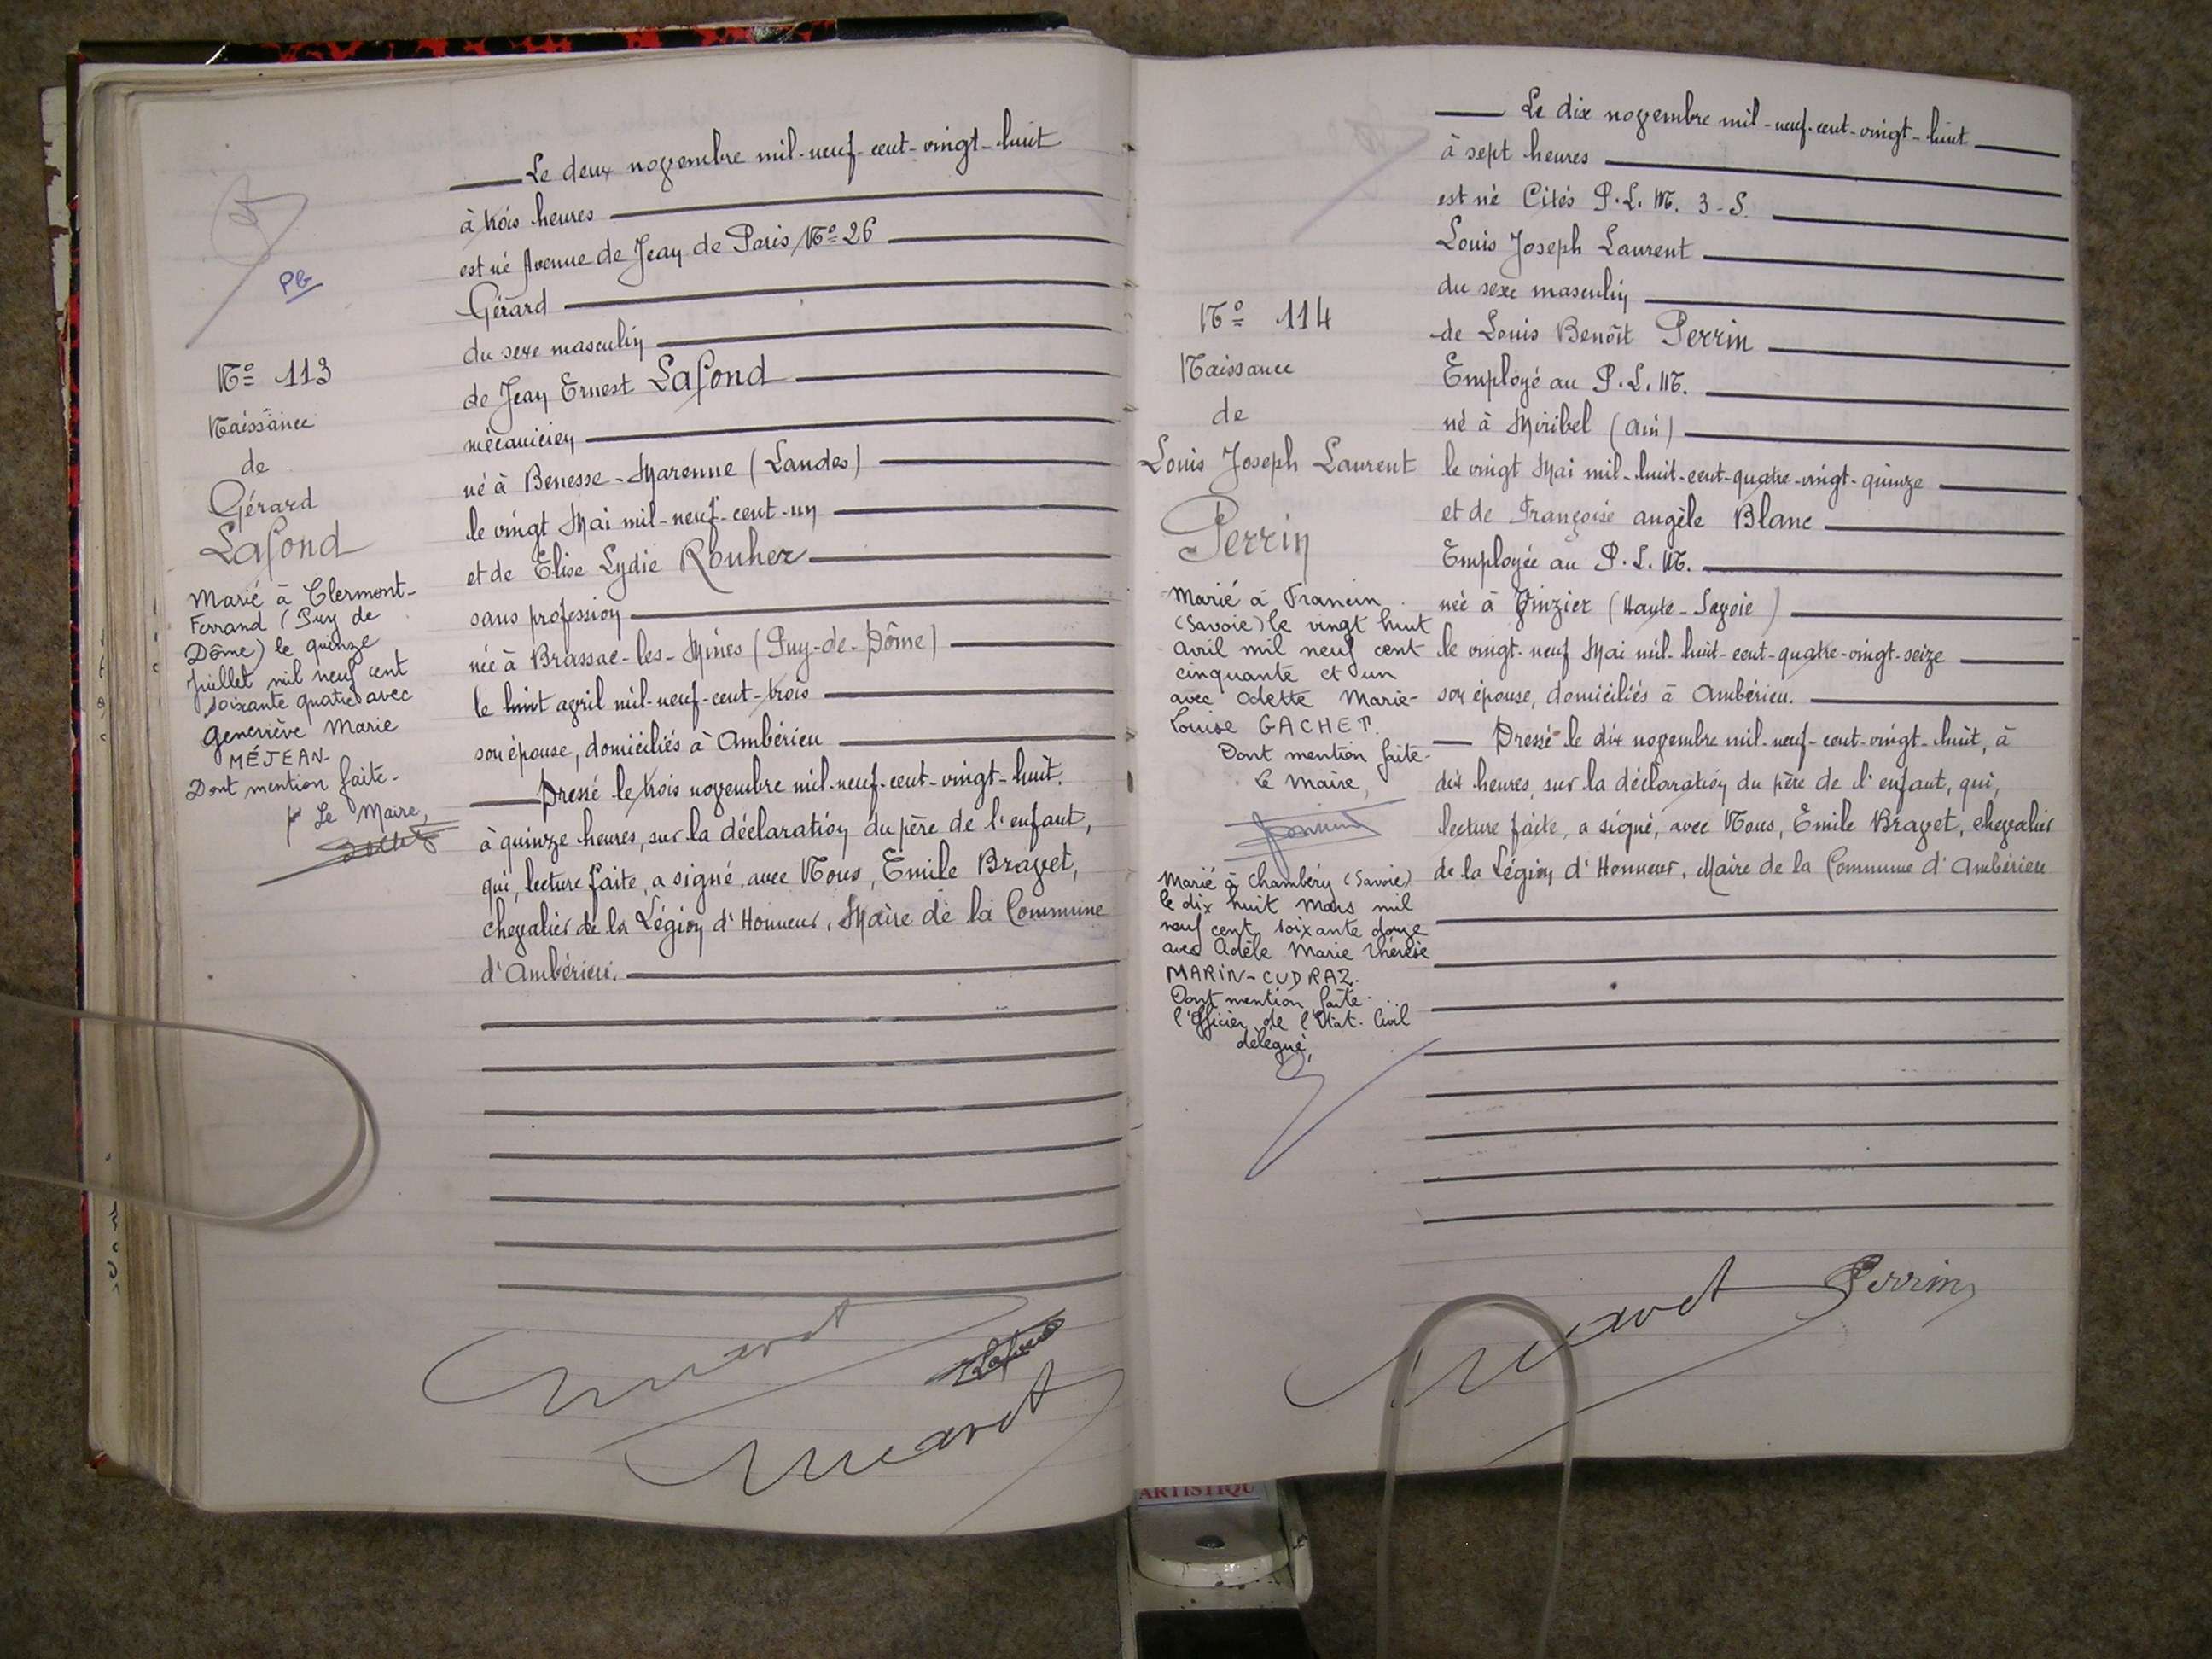 PB
Nº 113
Naissance
de
Gérard
Lafond
Marié à Clermont-
Ferrand (Puy de
Dôme) le quinze
Juillet mil neuf cent
soixante quatre avec
Geneviève Marie
MÉJEAN-
Dont mention faite-
Le Maire,
Le deux novembre mil-neuf-cent-vingt-huit
à trois heures
est né Avenue de Jean de Paris Nº 26
Gérard
du sexe masculin
de Jean Ernest Lafond
mécanicien
né à Benesse-Marenne (Landes)
le vingt Mai mil-neuf-cent-un
et de Elise Lydie Rouher
sans profession
née à Brassac-les-Mines (Puy-de-Dôme)
le huit avril mil-neuf-cent-trois
son épouse, domiciliés à Ambérieu
Dressé le trois novembre mil-neuf-cent-vingt-huit.
à quinze heures, sur la déclaration du père de l'enfant,
qui, lecture faite, a signé, avec Nous, Emile Bravet,
chevalier de la Légion d'Honneur, Maire de la Commune
d'Ambérieu.
Nº 114
Naissance
de
Louis Joseph Laurent
Perrin
Marié à Francin
(Savoie) le vingt huit
Avril mil neuf cent
cinquante et un
avec Odette Marie-
Louise GACHET.
Dont mention faite-
Le Maire,
Marié à Chambéry (Savoie)
le dix huit Mars mil
neuf cent soixante douze
avec Adèle Marie Thérèse
MARIN-CUDRAZ.
Dont mention faite-
l'Officier de l'Etat-Civil
délégué,
Le dix novembre mil-neuf-cent-vingt-huit
à sept heures
est né Cités P.L.M. 3-S.
Louis Joseph Laurent
du sexe masculin
de Louis Benoît Perrin
Employé au P.L.M.
né à Miribel (Ain)
le vingt Mai mil-huit-cent-quatre-vingt-quinze
et de Françoise Angèle Blanc
Employée au P.L.M.
née à Vinzier (Haute-Savoie)
le vingt-neuf Mai mil-huit-cent-quatre-vingt-seize
son épouse, domiciliés à Ambérieu.
Dressé le dix novembre mil-neuf-cent-vingt-huit, à
dix heures, sur la déclaration du père de l'enfant, qui,
lecture faite, a signé, avec Nous, Emile Bravet, chevalier
de la Légion d'Honneur, Maire de la Commune d'Ambérieu
Perrin
ARTISTIQU